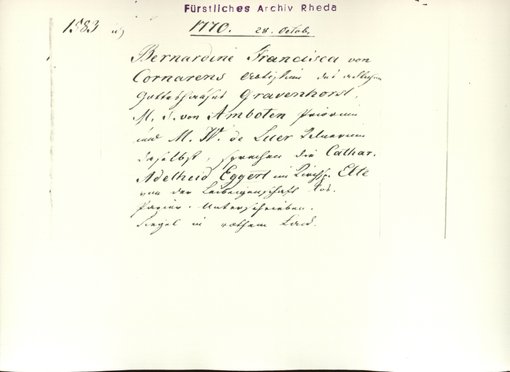 Fürstliches Archiv Rheda
1583
1770. 28. Octob.
Bernardine Francisca von
Cornarens Abtißin des adlichen
Gotteshauses Gravenhorst,
M. S. von Amboten Priorin
und M. W. de Luer
daselbst, sprechen die Cathar.
Adelheid Eggert im Kirchsp. Elte
von der Leibeigenschaft los.
Papier. Unterschrieben.
Siegel in rothem Lack.